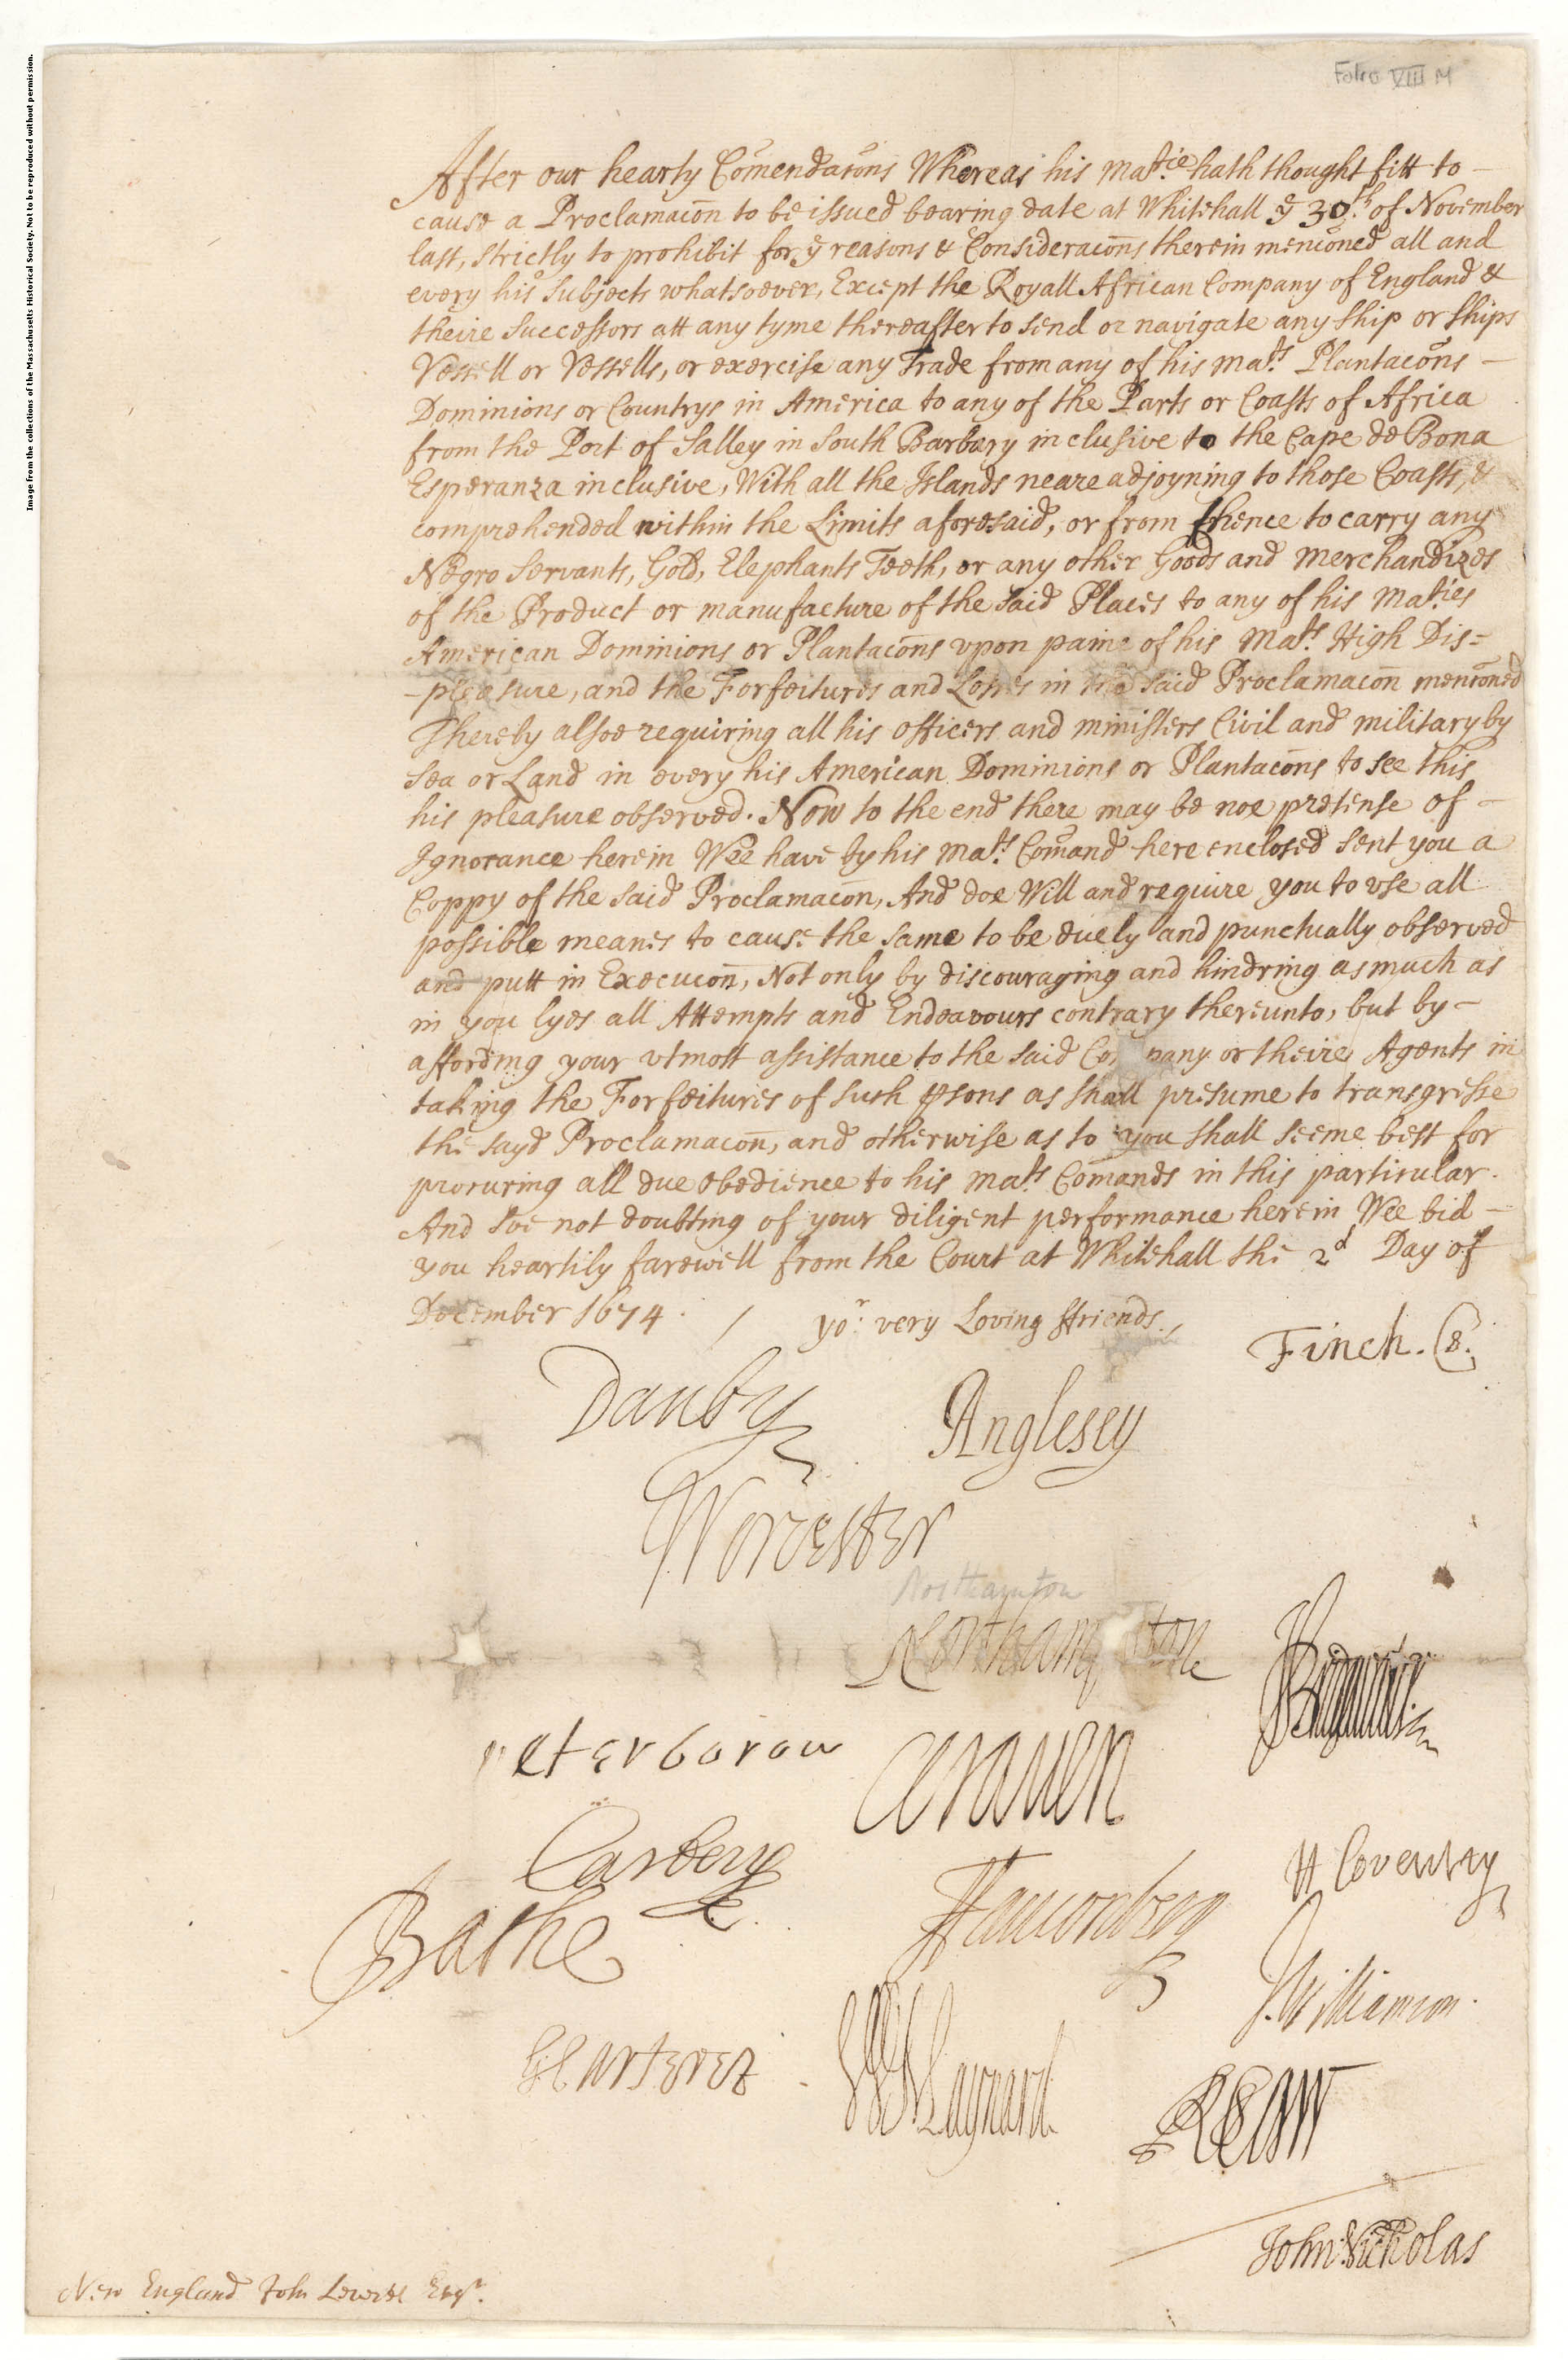 Folio VIII M
Image from the collections of the Massachusetts Historical Society. Not to be reproduced without permission.
After our hearty Comendacons Whereas his Matie hath thought fitt to -
cause a Proclamacon to be issued bearing date at Whitehall ye 30th of November
last, strictly to prohibit for ye reasons & Consideracons therein menconed all and
every his Subjects whatsoever, Except the Royall African Company of England &
theire Successors att any tyme thereafter to send or navigate any ship or ships
Vessell or Vessells, or exercise any Trade from any of his Mats Plantacons -
Dominions or Countrys in America to any of the Parts or Coasts of Africa
from the Port of Salley in South Barbary inclusive to the Cape de Bona
Esperanza inclusive, With all the Islands neare adjoyning to those Coasts, &
comprehended within the Limits aforesaid, or from thence to carry any
Negro Servants, Gold, Elephants Teeth, or any other Goods and Merchandizes
of the Product or manufacture of the said Places to any of his Maties
American Dominions or Plantacons vpon paine of his Mats High Dis=
-pleasure, and the Forfeitures and Losses in the said Proclamacon menconed
Thereby alsoe requiring all his officers and ministers Civil and military by
Sea or Land in every his American Dominions or Plantacons to see this
his pleasure observed. Now to the end there may be noe pretense of -
Ignorance herein Wee have by his Mats Comand here enclosed sent you a
Coppy of the said Proclamacon, And doe Will and require you to vse all
possible meanes to cause the same to be duely and punctually observed
and putt in Execucon, Not only by discouraging and hindring as much as
in you lyes all Attempts and Endeavours contrary thereunto, but by -
affording your vtmost assistance to the said Company or theire Agents in
taking the Forfeitures of such psons as shall presume to transgresse
the sayd Proclamacon, and otherwise as to you shall seeme best for
procuring all due obedience to his Mats Comands in this particular.
And soe not doubting of your diligent performance herein Wee bid -
you heartily farewell from the Court at Whitehall the 2d Day of
December 1674. / yor very Loving ffriends,
Finch. C S.
Danby
Anglesey
Worcester
Northampton
Northampton
Bridgewater
Peterborow
Craven
Carbery
H Coventry
Bathe
Fauconberg
J. Williamson.
G Carteret
W Maynard
John Nicholas
New England John Leverett Esqr.